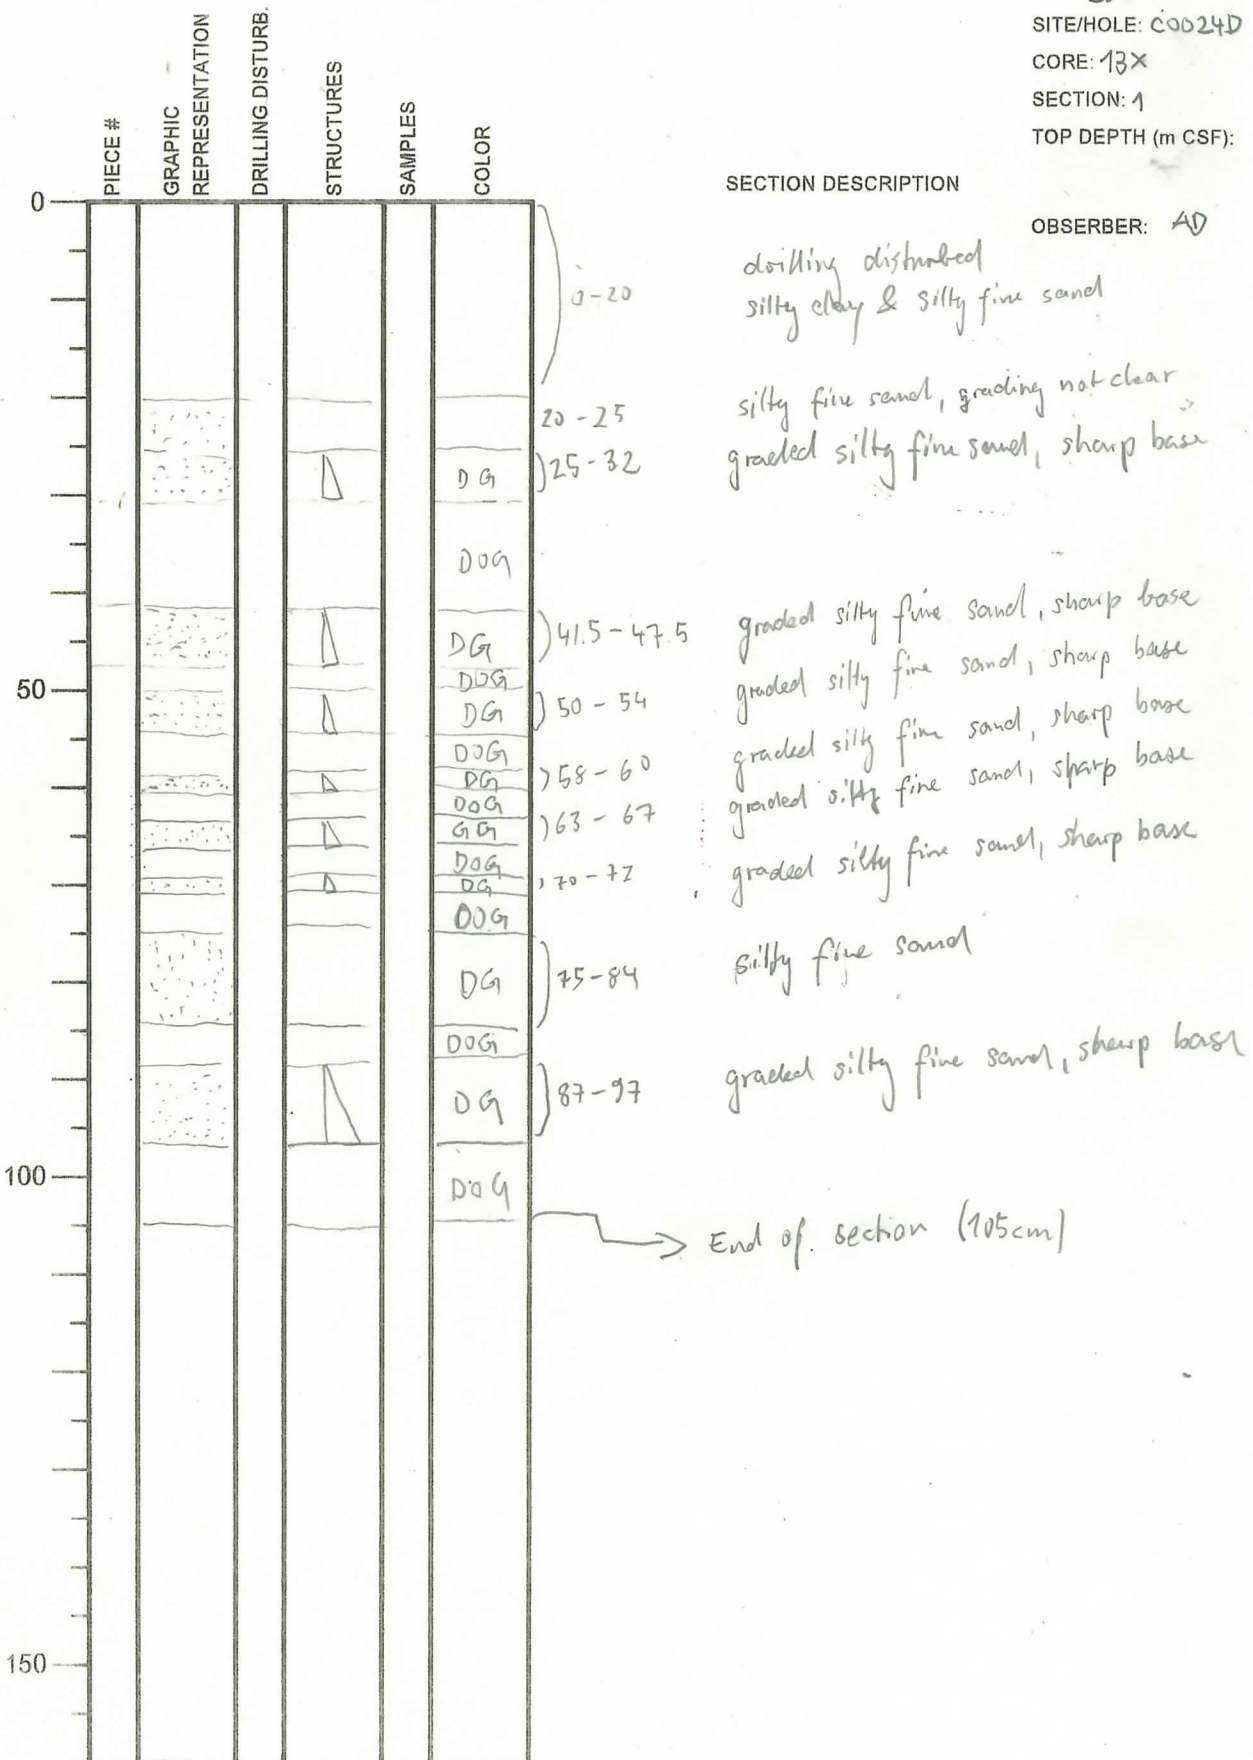 SITE/HOLE: C0024D
CORE: 13X
SECTION: 1
TOP DEPTH (m CSF):
PIECE #
GRAPHIC REPRESENTATION
DRILLING DISTURB.
STRUCTURES
SAMPLES
COLOR
SECTION DESCRIPTION
OBSERBER: AD
0
0-20
drilling disturbed
silty clay & silty fine sand
20-25 silty fine sand, grading not clear
DG 25-32 graded silty fine sand, sharp base
DOG
DG 41.5-47.5 graded silty fine sand, sharp base
DOG
50
DG 50-54 graded silty fine sand, sharp base
DOG
DG 58-60 graded silty fine sand, sharp base
DOG
GG 63-67 graded silty fine sand, sharp base
DOG
DG 70-72 graded silty fine sand, sharp base
DOG
DG 75-84 silty fine sand
DOG
DG 87-97 graded silty fine sand, sharp base
100
DOG
End of. section (105cm)
150